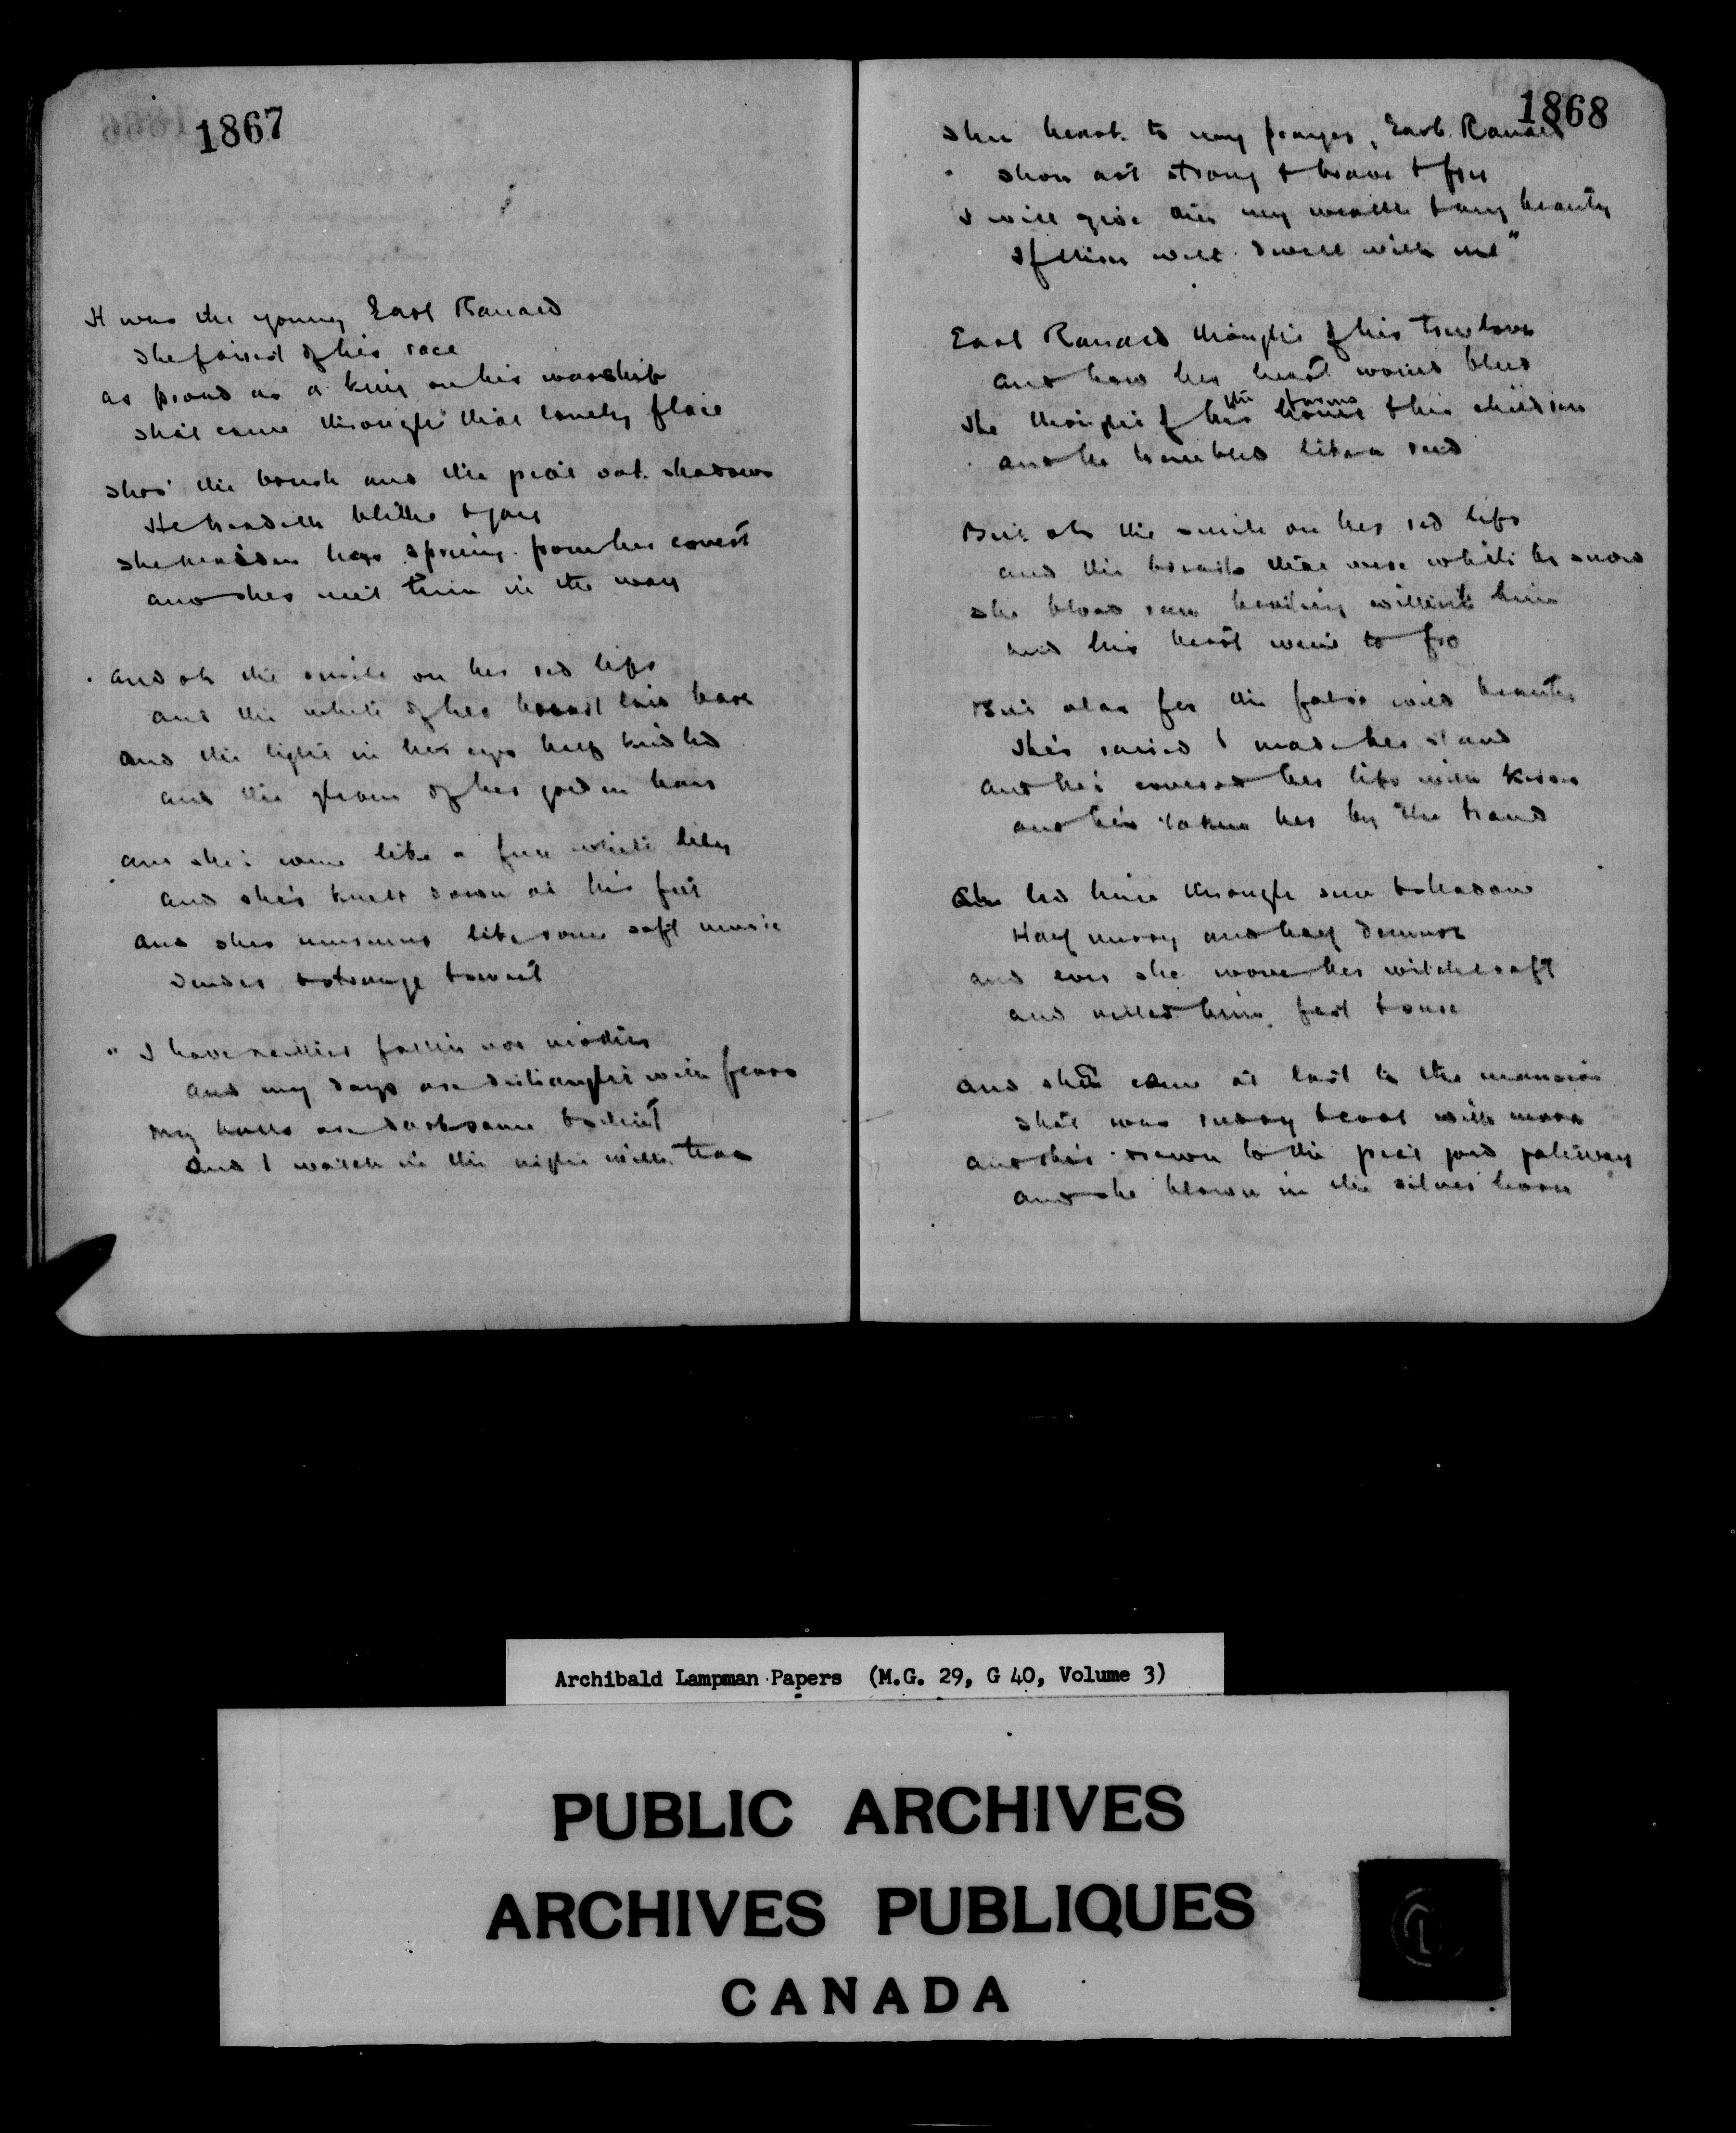 1867
It was the young Earl Ranald
The fairest of his race
As proud as a king on his warship
That came through that lonely place
Thro' the brush and the great oak shadows
He treadeth blithe & gay
The maiden has sprung from her covert
And she's met him in the way
And oh the smile on her red lips
And the white of her breast laid bare
And the light in her eyes half kindled
And the gleam of her golden hair
And she's come like a fair white lily
And she's knelt down at his feet
And she's murmured like some soft music
Tender & strange & sweet
"I have neither father nor mother
And my days are distraught with fears
My halls are darksome & silent
And I watch in the night with tears
1868
Then heark to my prayer, Earl Ranald
Thou art strong & brave & free
I will give thee my wealth & my beauty
If thou wilt dwell with me"
Earl Ranald thought of his true love
And how her heart would bleed
the
He thought of his house & his children
And he trembled like a reed
But oh the smile on her red lips
And the breasts that were white as snow
The blood ran beating within him
And his heart went to & fro
But alas for the false wild beauty
He's raised & made her stand
And he's covered her lips with kisses
And he's taken her by the hand
She led him through sun & shadow
Half merry and half demure
And ever she wove her witchcraft
And netted him fast & sure
And they came at last to the mansion
That was ruddy & with
And she's drawn to the great gold pathway
And she's blown in the silver horn
Archibald Lampman Papers (M.G. 29, G 40, Volume 3)
PUBLIC ARCHIVES
ARCHIVES PUBLIQUES
CANADA